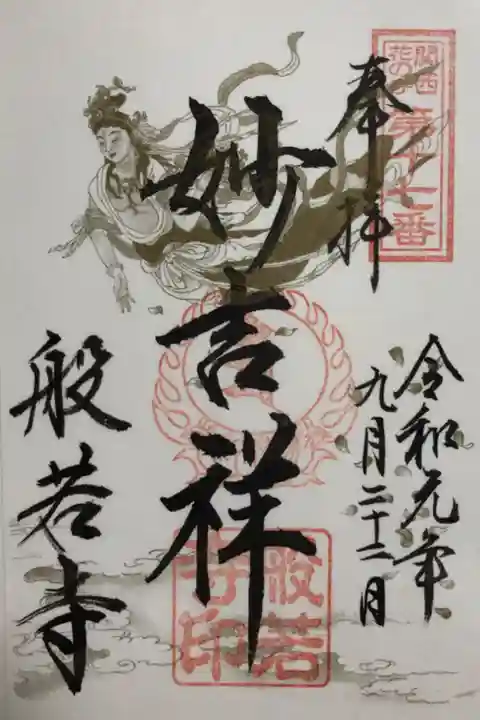 関西
花の寺
第十七番
奉拝
令和元年
九月二十二日
妙吉祥
般若寺
般若
寺印